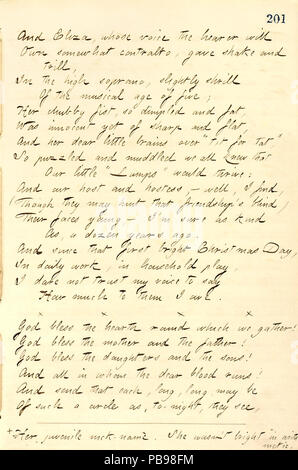 201
And Eliza, whose voice the hearer will
Own somewhat contralto, gave shake and
trill,
In the high soprano, slightly shrill
Of the musical age of five;
Her chubby fist, so dimpled and fat,
Was innocent yet of sharp and flat,
And her dear little brains over "tit for tat"
So puzzled and muddled we all knew that
Our little "Lumps" would thrive:
And our host and hostess, – well, I find,
(Though they may hint that friendship's blind,)
Their faces young – I'm sure as kind
As, a dozen years ago.
And since that first bright Christmas Day,
In daily work, in household play,
I dare not trust my voice to say
How much to them I owe.
x x x x
God bless the hearth round which we gather!
God bless the mother and the father!
God bless the daughters and the sons!
And all in whom the dear blood runs!
And send that each, long, long may be
Of such a circle as, to-night, they see,
+ Her, juvenile nick-name. She wasn't bright in arith
metic.
alamy
PB98FM